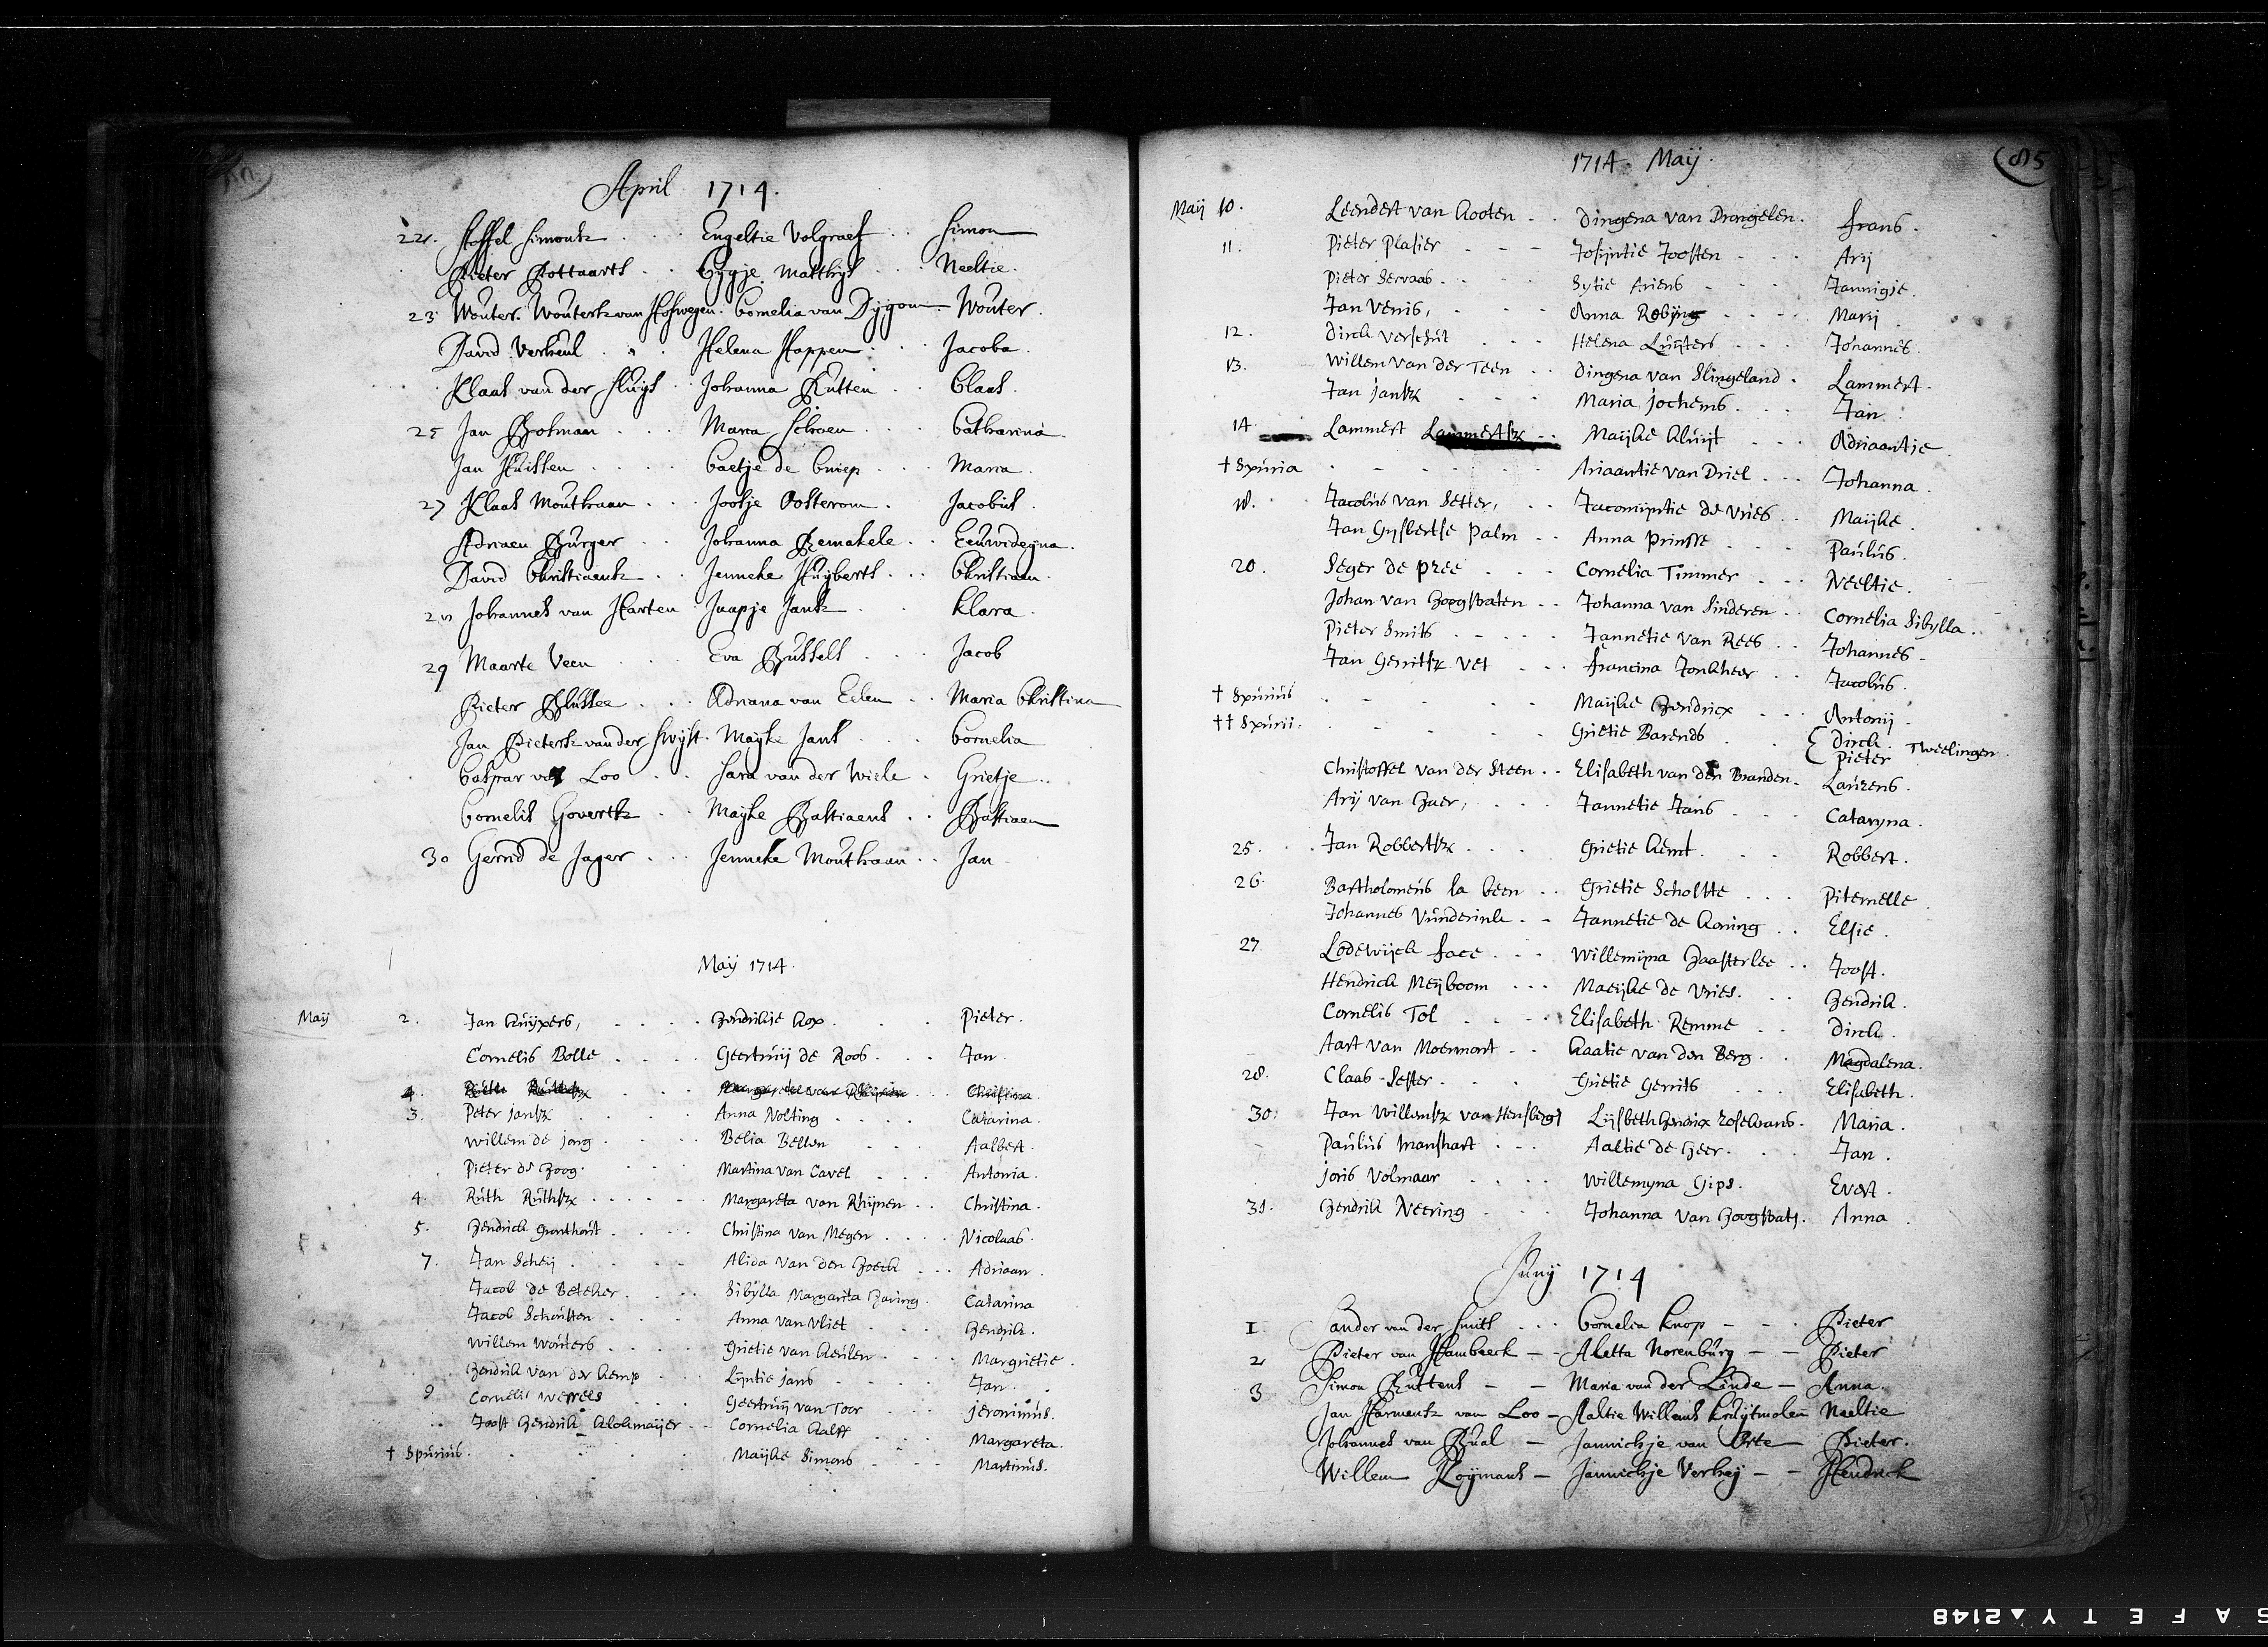 April 1714.
22. Stoffel Simontz . . . Engeltie Volgraef . . Simon
Pieter Pottaarts . . Cygje Matthijs . . . Neeltie.
23 Wouter Woutertz van . Cornelia van Dygom Wouter.
David Verheul . . . Helena Hoppen . . . Jacoba.
Klaas van der Sluijs . . Johanna Rutten . . Claas.
25 Jan Bosman . . . Maria Schaen . . . Catharina.
Jan Huissen . . . . Caetje de Cniep . . . Maria.
27 Klaas Mouthaan . . . Jootje Oosterom . . Jacobus.
Adriaen Burger . . Johanna Bemakele . .
David Christiaentz . . Jenneke Huijberts . . . Christiaen.
Johannes van Harten Jaapje Jantz . . Klara.
29 Maarte Veen . . . Eva Bussels . . . Jacob
Pieter Blussee . . . Adriana van Eelen . . Maria Christina
Jan Pietertz van der Swijst . Mayke Jans . . . Cornelia
Caspar van Loo . . . Sara van der Wiele . Grietje . .
Cornelis Govertz . . Mayke Bastiaens . . Bastiaen
30 Gerrid de Jager . . . Jenneke Mouthaan . . Jan
Maij 1714.
Maij 2. Jan Kuijpers, . . . . Hendrikje Kox . . . Pieter.
Cornelis Bolle . . . . Geertruij de Roos . . . Jan.
4. Ruth Ruthsz Margareta van Rhijnen . . . Christina.
3. Peter Jansz . . . . Anna Nolting . . . . Catarina.
Willem de Jong . . . . Belia Bellen . . . Aalbert.
Pieter de Hoog . . . . Martina van Cavel . . . Antonia.
4. Ruth Ruthsz . . . . . Margareta van Rhijnen . . Christina.
5. Hendrick Gronthout . . . . Christina van Megen . . . . Nicolaas.
7. Jan Scheij . . . . Alida van den Hoeck . . . Adriaan.
Jacob de Beteker . . . . Sibylla Margarita Haring . Catarina
Jacob Schouten . . . . Anna van Vliet . . . Hendrik.
Willem Wouters . . . . Grietie van Keulen . . . . Margrietie.
Hendrik van der Kemp . . Lijntie Jans . . . . Jan.
9 Cornelis Wessels . . . Geertruij van Toor . . . Jeronimus.
Joost Hendrik Klokmaijer . . Cornelia Kalff . . . Margareta.
† Spurius . . . . . Maijke Simons . . . . Martinus.
1714. Maij.
85
Maij 10. Leendert van Kooten . . Dingena van Drongelen. Frans.
11. Pieter Plasier - - - Josijntie Joosten . . . Arij
Pieter Servaas . . . . Sytie Ariens . . . Jannigje.
Jan Venis, . . . . Anna Robijns . . . . Marij.
12. Dirck Verschut . . . Helena Luijters . . . Johannes.
13. Willem van der Teen . . Dingena van Slingeland . Lammert.
Jan Jansz . . . Maria Jochems . . . Jan.
14. Lammert Lammertsz . . Maijke Kluijt . . . Adriaantje
† Spuria . . . . . Ariaantie van Driel . . . Johanna.
18. Jacobus van Setter, . . Jacomijntie de Vries . . Maijke.
Jan Gysbertse Palm . . Anna Prinsse . . . Paulus.
20. Seger de Pree . . . Cornelia Timmer . . . Neeltie.
Johan van Hoogstraten . . Johanna van Sinderen . . Cornelia Sibylla.
Pieter Smits . . . . . Jannetie van Rees . . Johannes.
Jan Gerritsz Vet . . . Francina Jonkheer . . Jacobus.
† Spurius . . . . . Maijke Hendrix . . . Antonij.
†† Spurii. . . . . . Grietie Barends . . { Dirck. Pieter Tweelingen.
Christoffel van der Steen . . Elisabeth van den Branden . Laurens.
Arij van Haer, . . . . Jannetie Jans . . . Cataryna.
25. Jan Robbertsz . . . Grietie Kemt . . . Robbert.
26. Bartholomeus la Been . . Grietie Scholtte . . . Piternelle
Johannes Vunderink . . Jannetie de Koning . . Elsie.
27. Lodewijck Face . . . Willemijna Haasterlee . . Joost.
Hendrick Meijboom . . . Maeijke de Vries. . . Hendrik.
Cornelis Tol . . . . Elisabeth Remme . . Dirck.
Aart van Moermont . . Kaatie van den Berg . . Magdalena.
28. Claas Sester . . . . Grietie Gerrits . . . Elisabeth.
30. Jan Willemsz van Lijsbeth Hendrix Maria.
Paulus Manshart . . . Aaltie de Heer . . . Jan.
Joris Volmaar . . . . Willemyna Gips . . . Evert.
31. Hendrik Neering . . . Johanna van Hoogstrate . Anna.
Junij 1714
1 Sander van der Smith . . . Cornelia Knop - - . Pieter
2 Pieter van Hambeeck - - Aletta Norenburg - - Pieter
3 Simon Ruttens - - Maria van der Linde - Anna.
Jan Harmentz van Loo - Aaltie Willems Kruijtmolen Neeltie
Johannes van Bual - Jannichje van Orte - Pieter.
Willem Rooijmans - Jannichje Verheij - - Hendrick
SAFETY 2148